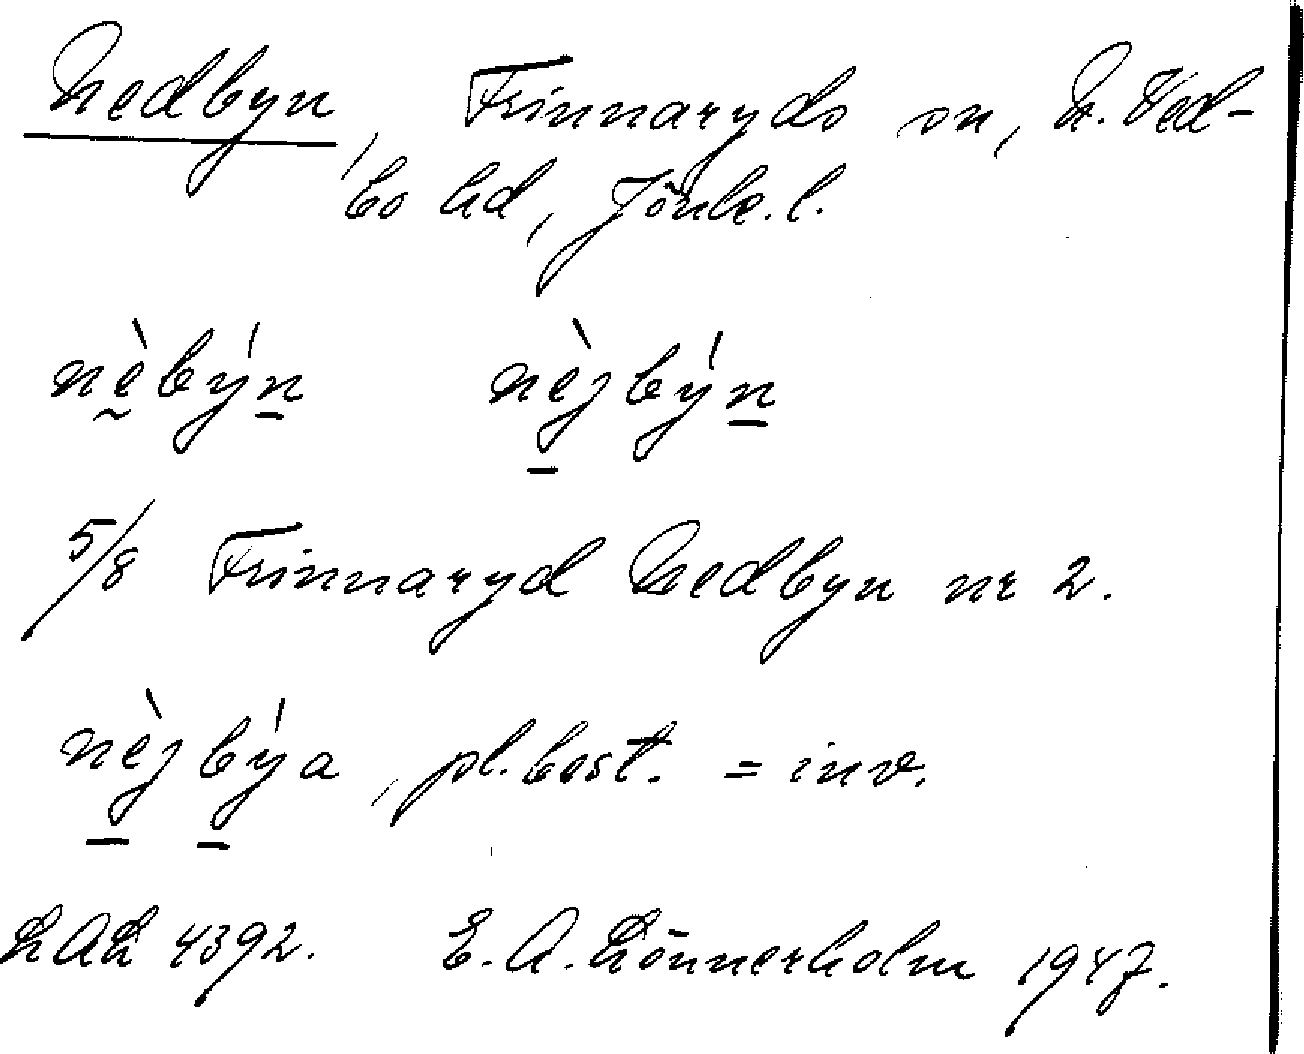 Nedbyn, Frinnaryds sn, N. Ved-
bo hd, Jönk. l.
nèbýn nèjbýn
5/8 Frinnaryd Nedbyn nr 2.
nèjbýa, pl. best. = inv.
LAL 4392. E. A. Lönnerholm 1947.